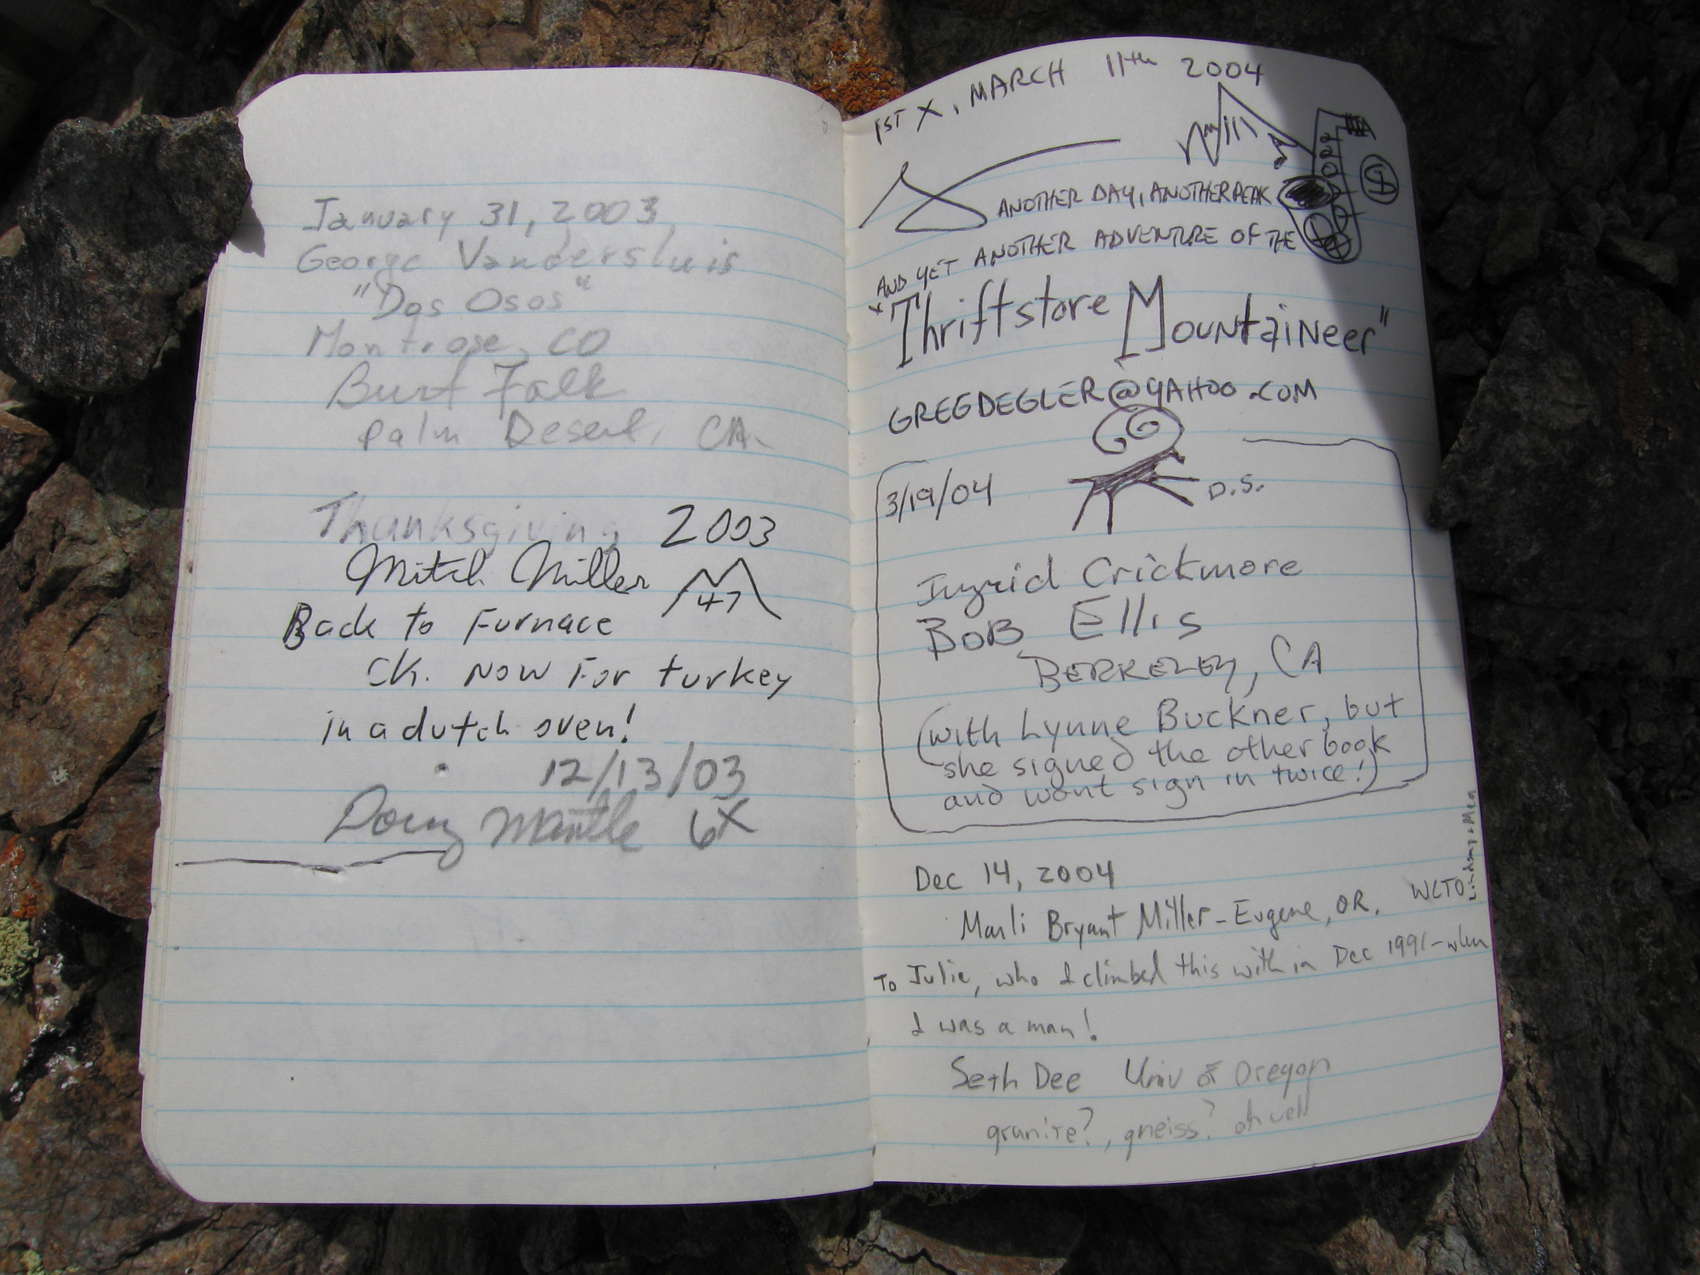 January 31, 2003
George Vandersluis
"Dos Osos"
Montrose, CO
Burt Falk
Palm Desert, CA.
Thanksgiving 2003
Mitch Miller
47
Back to Furnace
Ck. Now For turkey
in a dutch oven!
12/13/03
Doug Mantle 6X
1ST X, MARCH 11th 2004
ANOTHER DAY, ANOTHER PEAK
AND YET ANOTHER ADVENTURE OF THE
"Thriftstore Mountaineer"
GREGDEGLER@YAHOO.COM
3/19/04
D.S.
Ingrid Crickmore
BOB Ellis
BERKELEY, CA
(with Lynne Buckner, but
she signed the other book
and wont sign in twice!)
Dec 14, 2004
Marli Bryant Miller - Eugene, OR. WLTO
Lindsay + Meg
To Julie, who I climbed this with in Dec 1991 - when
I was a man!
Seth Dee Univ of Oregon
granite?, gneiss? oh well